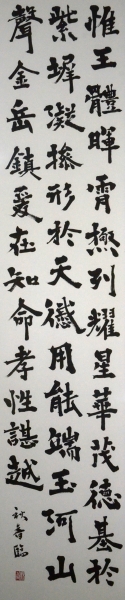 惟王體暉霄極列耀星華茂德基於
紫墀凝操形於天儀用能端玉河山
聲金岳鎮爰在知命孝性諶越
秋香臨